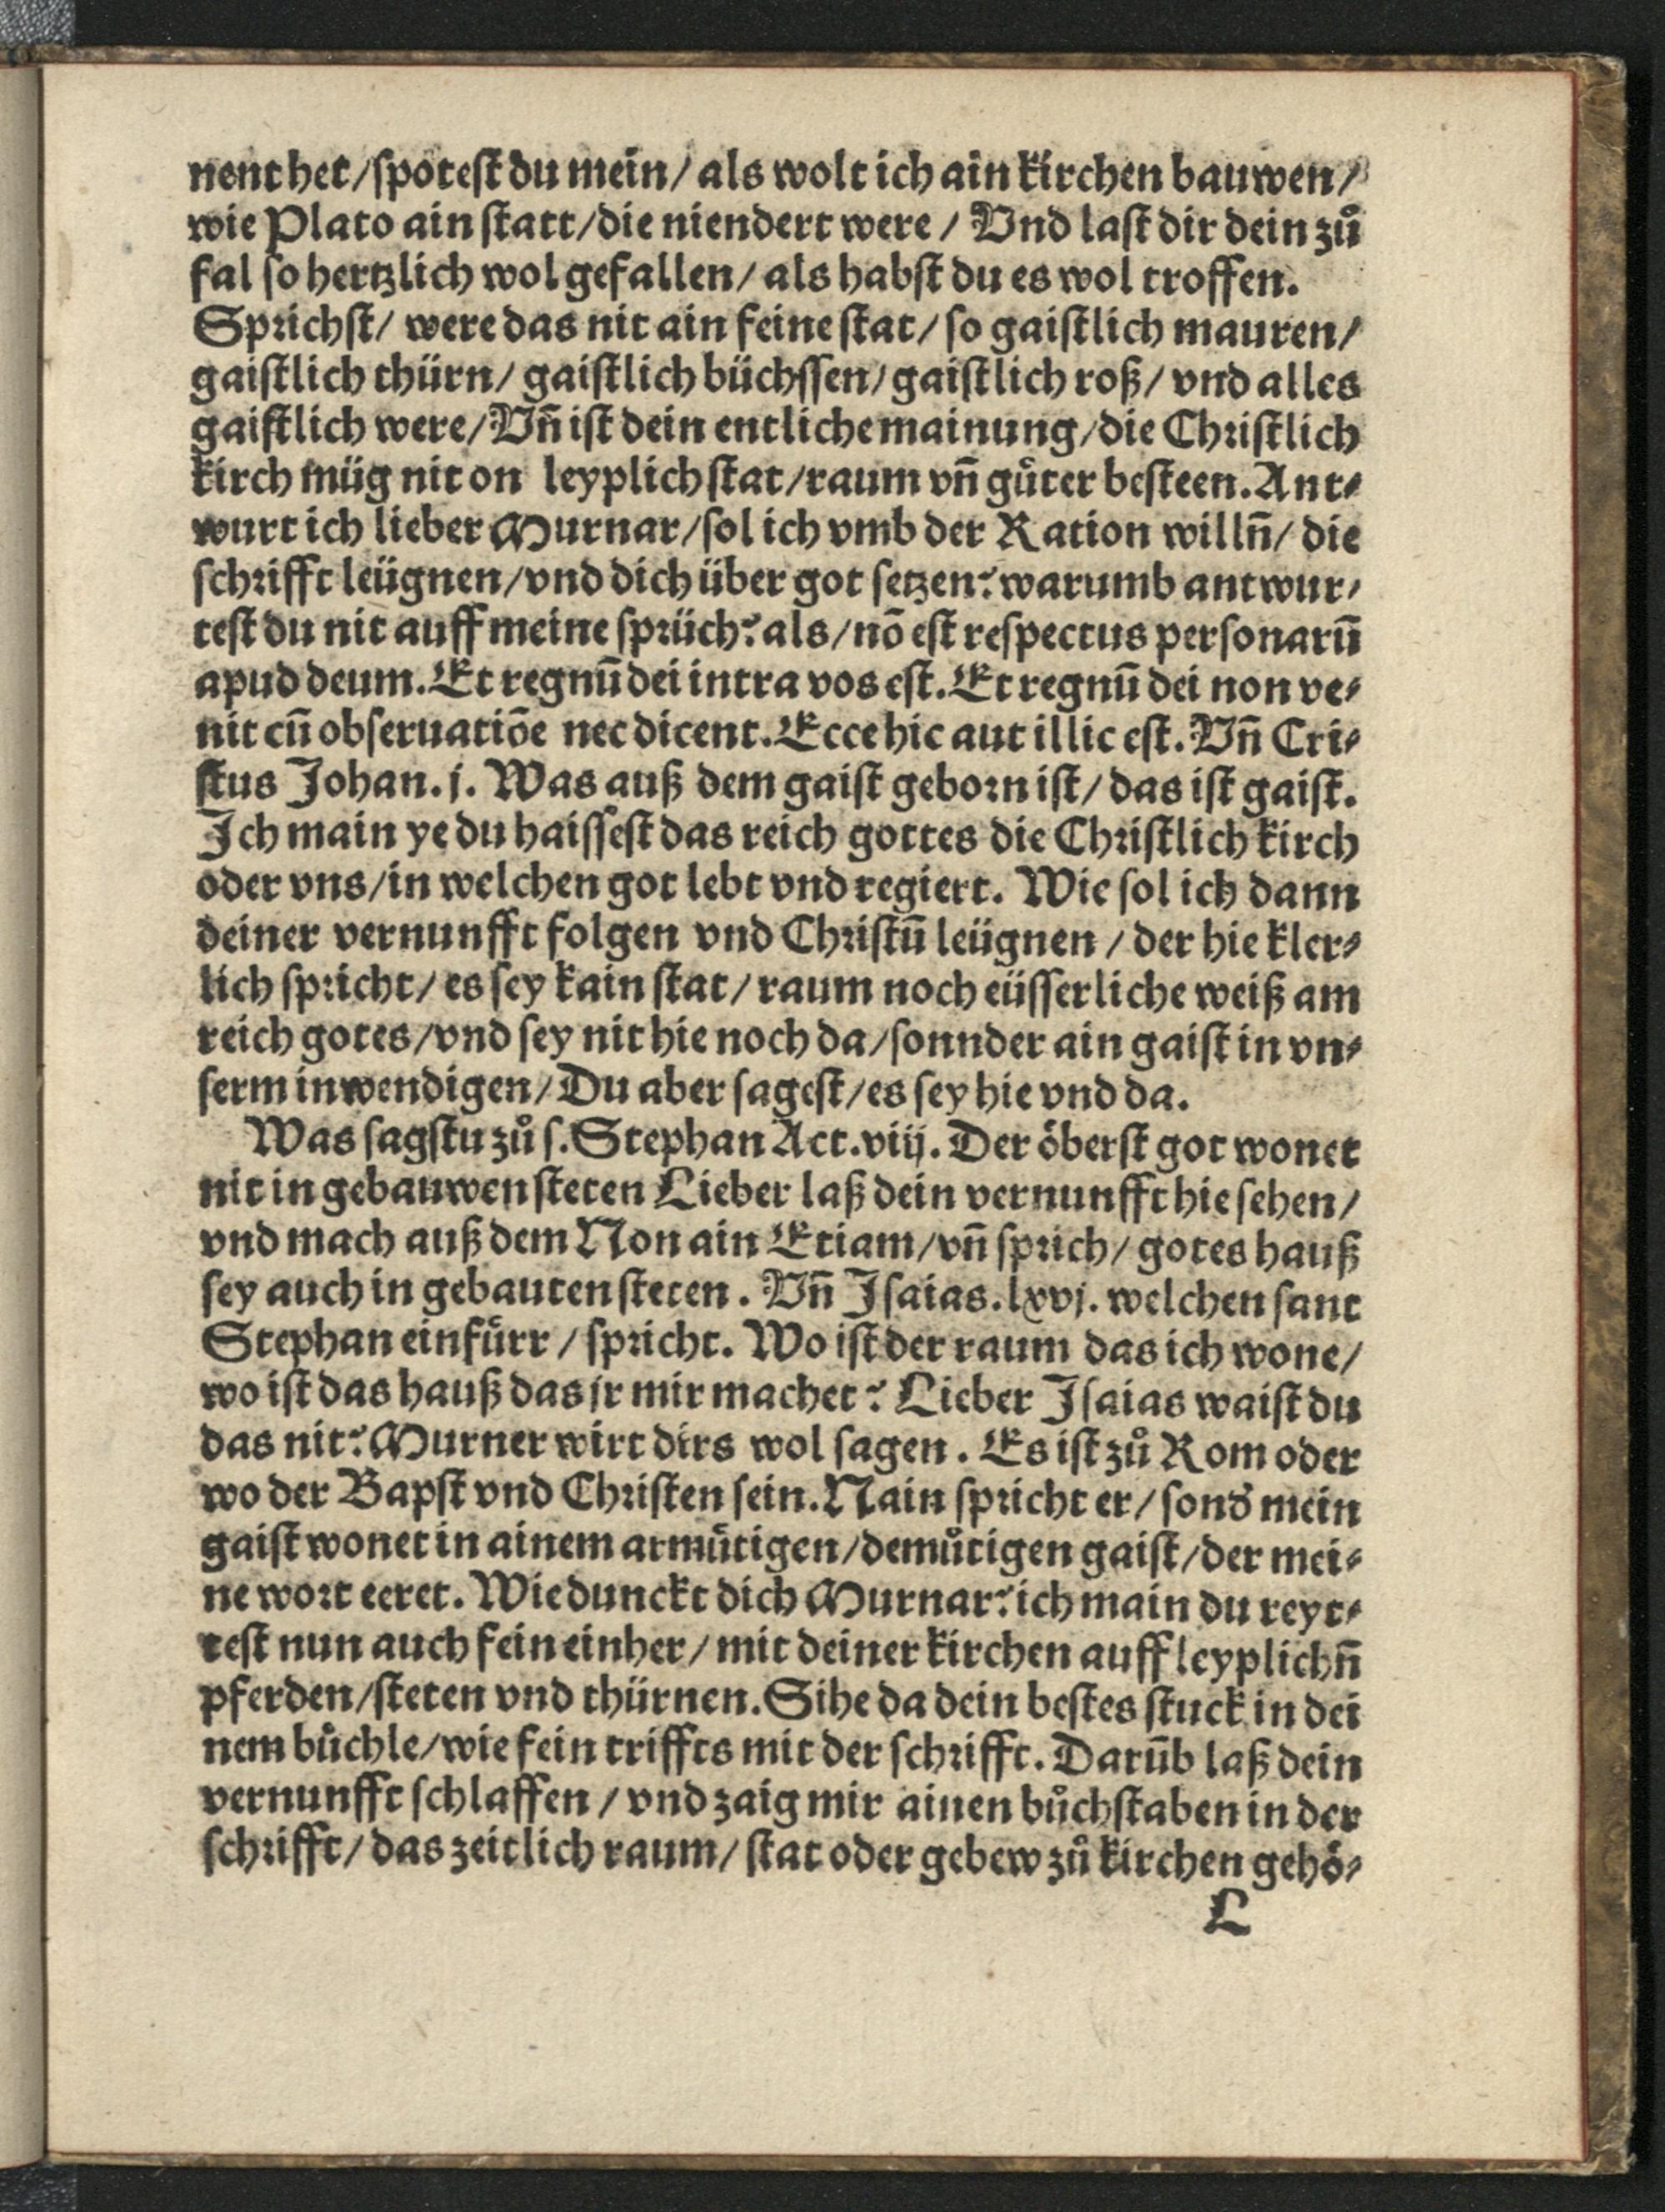 nent het/ſpoteſt du mein/ als wolt ich ain kirchen bauwen/
wie Plato ain ſtatt/die niendert were/ Vnd laſt dir dein zů
fal ſo hertzlich wol gefallen/ als habſt du es wol troffen.
Sprichſt/ were das nit ain feine ſtat/ ſo gaiſtlich mauren/
gaiſtlich thürn/ gaiſtlich büchſſen/ gaiſtlich roß/ vnd alles
gaiſtlich were/ Vn̄ iſt dein entliche mainung/die Chriſtlich
kirch müg nit on leyplich ſtat/raum vn̄ gůter beſteen. Ant⸗
wurt ich lieber Murnar/ſol ich vmb der Ration willn̄/ die
ſchrifft leügnen/vnd dich über got ſetzen? warumb antwur/
teſt du nit auff meine ſprüch? als/nō eſt reſpectus perſonarū
apud deum. Et regnū dei intra vos eſt. Et regnū dei non ve⸗
nit cū obſeruatiōe nec dicent. Ecce hic aut illic eſt. Vn̄ Cri⸗
ſtus Johan. j. Was auß dem gaiſt geborn iſt/ das iſt gaiſt.
Ich main ye du haiſſeſt das reich gottes die Chriſtlich kirch
oder vns/in welchen got lebt vnd regiert. Wie ſol ich dann
deiner vernunfft folgen vnd Chriſtū leügnen/ der hie kler⸗
lich ſpricht/ es ſey kain ſtat/ raum noch eüſſerliche weiß am
reich gotes/vnd ſey nit hie noch da/ſonnder ain gaiſt in vn⸗
ſerm inwendigen/Du aber ſageſt/es ſey hie vnd da.
Was ſagſtu zů ſ. Stephan Act. viij. Der öberſt got wonet
nit in gebauwen ſteten Lieber laß dein vernunfft hie ſehen/
vnd mach auß dem Non ain Etiam/vn̄ ſprich/ gotes hauß
ſey auch in gebauten ſteten. Vn̄ Iſaias. lxvj. welchen ſant
Stephan einfürr/ ſpricht. Wo iſt der raum das ich wone/
wo iſt das hauß das jr mir machet? Lieber Iſaias waiſt du
das nit? Murner wirt dirs wol ſagen. Es iſt zů Rom oder
wo der Bapſt vnd Chriſten ſein. Nain ſpricht er/ ſond' mein
gaiſt wonet in ainem armůtigen/demůtigen gaiſt/der mei⸗
ne wort eeret. Wie dunckt dich Murnar? ich main du reyt⸗
teſt nun auch fein einher/ mit deiner kirchen auff leyplichn̄
pferden/ſteten vnd thürnen. Sihe da dein beſtes ſtuck in dei
nem bůchle/wie fein triffts mit der ſchrifft. Darūb laß dein
vernunfft ſchlaffen/ vnd zaig mir ainen bůchſtaben in der
ſchrifft/ das zeitlich raum/ ſtat oder gebew zů kirchen gehö⸗
L